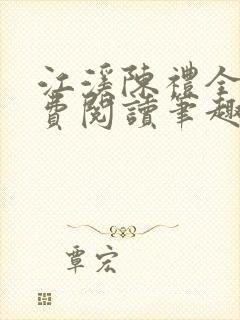 江溪陳禮全
費閱讀筆趣
覃宏